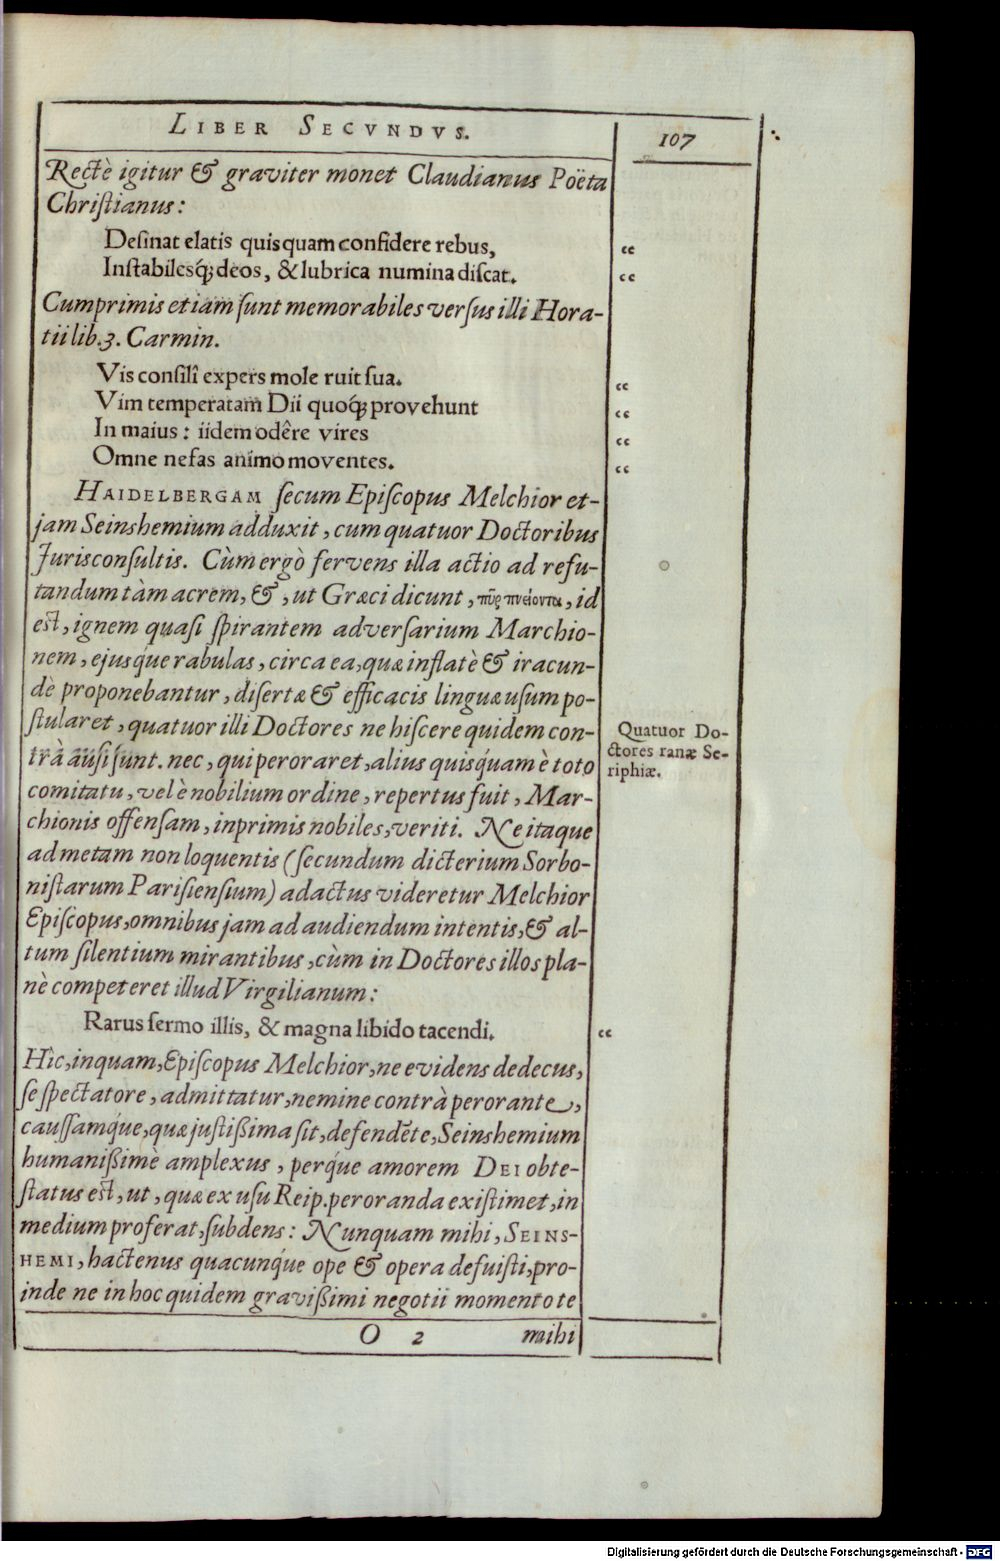 LIBER SECVNDVS.
107
Rectè igitur & graviter monet Claudianus Poëta
Christianus:
Desinat elatis quisquam confidere rebus,
Instabilesq́; deos, & lubrica numina discat.
Cumprimis etiam sunt memorabiles versus illi Hora-
tii lib. 3. Carmin.
Vis consilî expers mole ruit sua.
Vim temperatam Dii quoq́; provehunt
In maius: iidem odêre vires
Omne nefas animo moventes.
HAIDELBERGAM secum Episcopus Melchior et-
jam Seinshemium adduxit, cum quatuor Doctoribus
Jurisconsultis. Cùm ergò fervens illa actio ad refu-
tandum tàm acrem, &, ut Græci dicunt, πῦρ πνείοντα, id
est, ignem quasi spirantem adversarium Marchio-
nem, ejusq́ue rabulas, circa ea, quæ inflatè & iracun-
dè proponebantur, disertæ & efficacis linguæ usum po-
stularet, quatuor illi Doctores ne hiscere quidem con-
trà ausi sunt. nec, qui peroraret, alius quisq́uam è toto
comitatu, vel è nobilium ordine, repertus fuit, Mar-
chionis offensam, inprimis nobiles, veriti. Ne itaque
ad metam non loquentis (secundum dicterium Sorbo-
nistarum Parisiensium) adactus videretur Melchior
Episcopus, omnibus jam ad audiendum intentis, & al-
tum silentium mirantibus, cùm in Doctores illos pla-
nè competeret illud Virgilianum:
Rarus sermo illis, & magna libido tacendi.
Hìc, inquam, Episcopus Melchior, ne evidens dedecus,
se spectatore, admittatur, nemine contrà perorante,
caussamq́ue, quæ justißima sit, defendēte, Seinshemium
humanißimè amplexus, perq́ue amorem DEI obte-
status est, ut, quæ ex usu Reip. peroranda existimet, in
medium proferat, subdens: Nunquam mihi, SEINS-
HEMI, hactenus quacunq́ue ope & opera defuisti, pro-
inde ne in hoc quidem gravißimi negotii momento te
O 2 mihi
“
“
“
“
“
“
Quatuor Do-
ctores ranæ Se-
riphiæ.
“
Digitalisierung gefördert durch die Deutsche Forschungsgemeinschaft - DFG